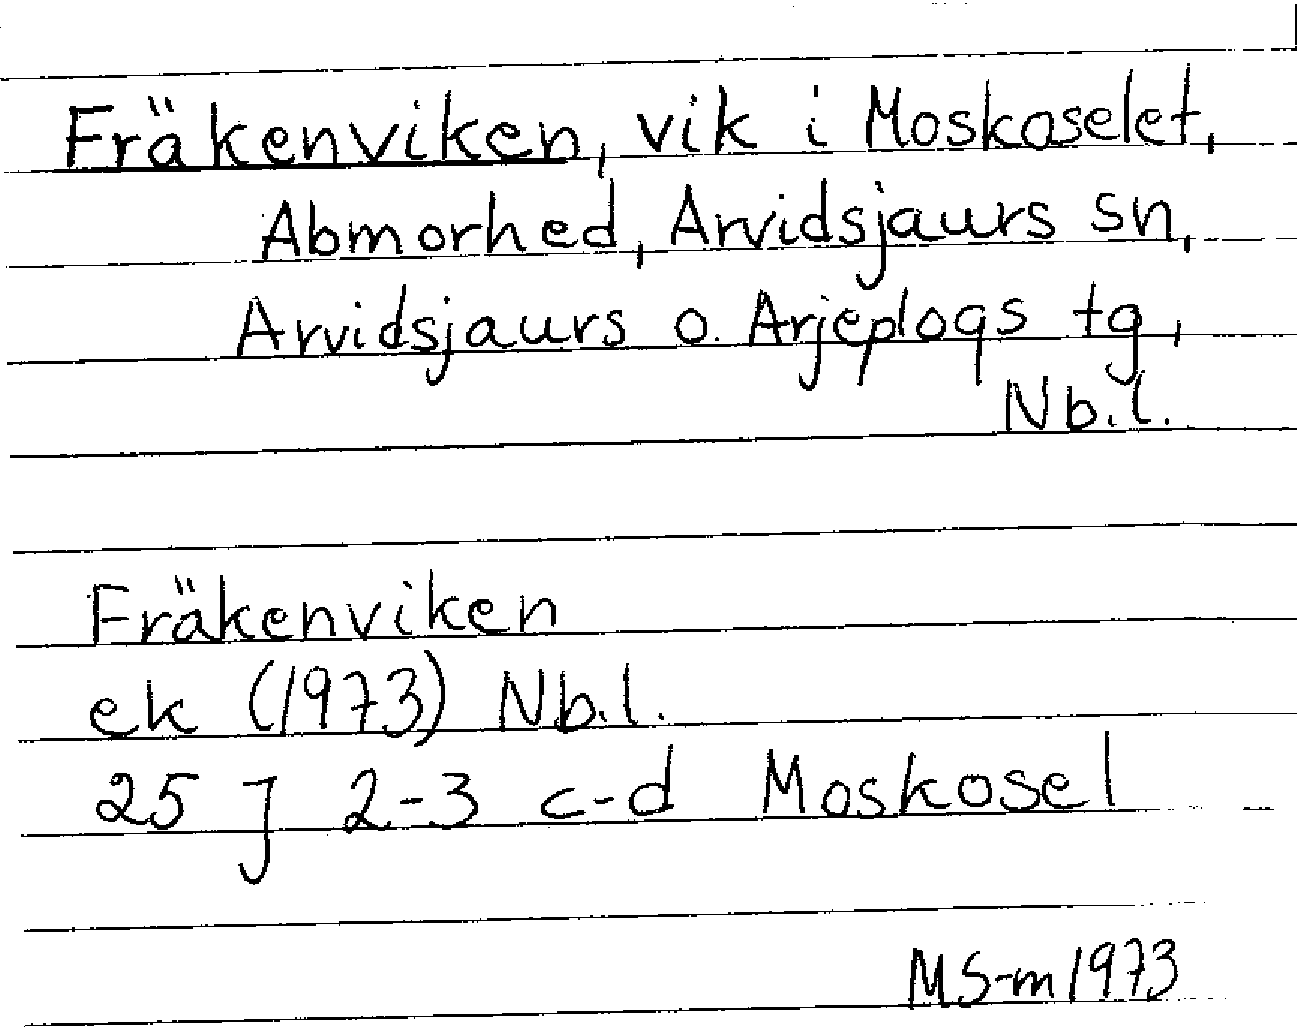 Fräkenviken, vik i Moskoselet,
Abmorhed, Arvidsjaurs sn,
Arvidsjaurs o. Arjeplogs tg,
Nb.l.
Fräkenviken
ek (1973) Nb.l.
25 J 2-3 c-d Moskosel
MS-m 1973